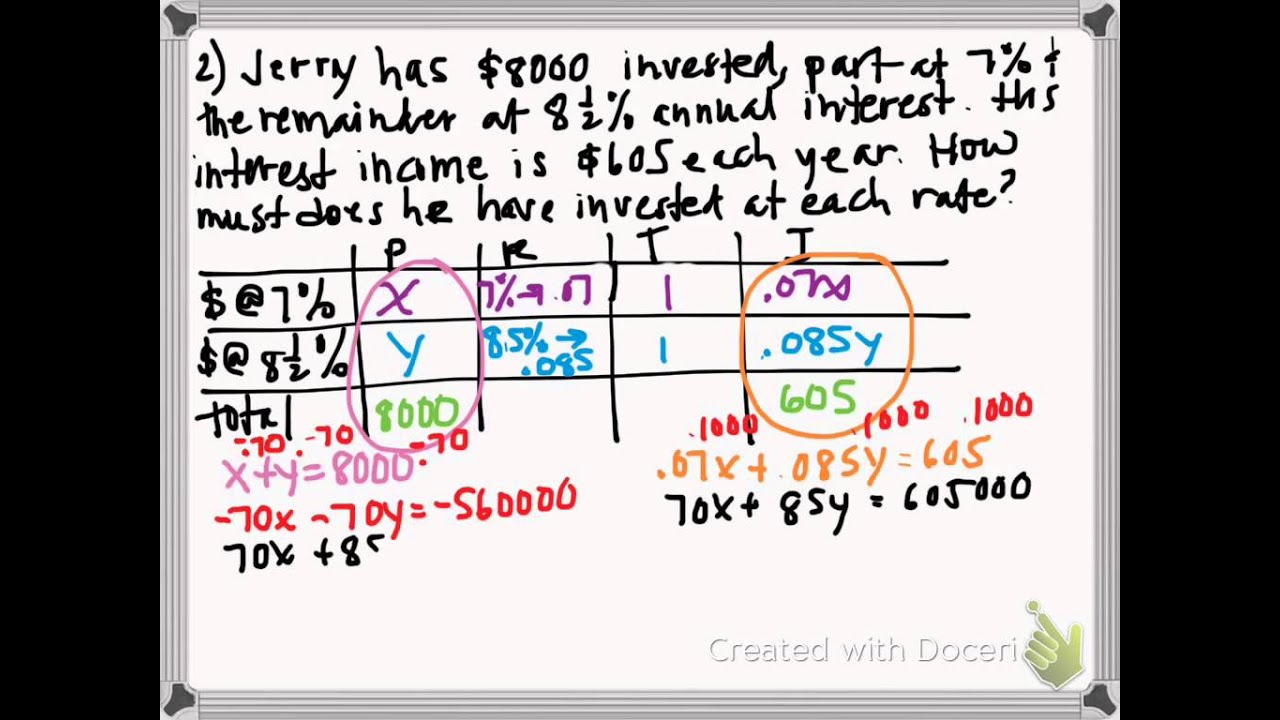 2) Jerry has $8000 invested, part at 7% &
the remainder at 8 1/2% annual interest. His
interest income is $605 each year. How
must does he have invested at each rate?
P R T I
$@7% X 7%→.07 1 .07x
$@8 1/2% y 8.5%→ .085 1 .085y
total 8000 605
·-70 ·-70 ·-70 ·1000 ·1000 ·1000
x+y=8000 .07x+.085y=605
-70x -70y=-560000 70x+85y=605000
70x +85
Created with Doceri